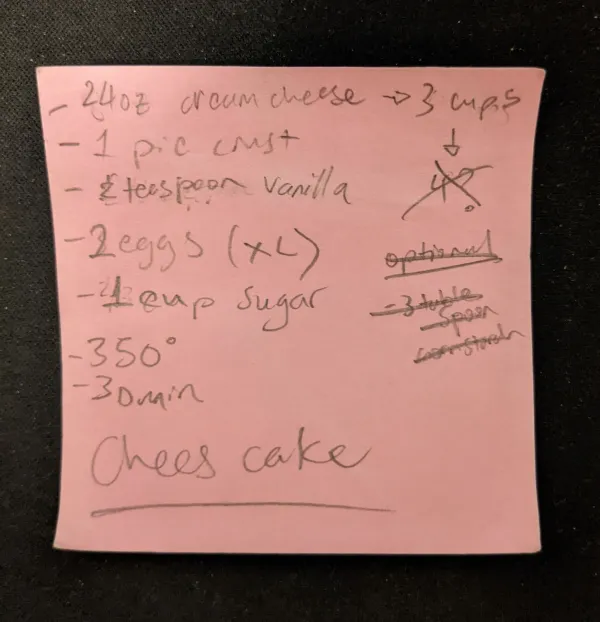 - 24oz cream cheese → 3 cups
- 1 pie crust
- teaspoon vanilla
4?
- 2 eggs (XL)
optional
- 1 cup sugar
- 3 table
spoon
corn starch
- 350°
- 30 min
Chees cake